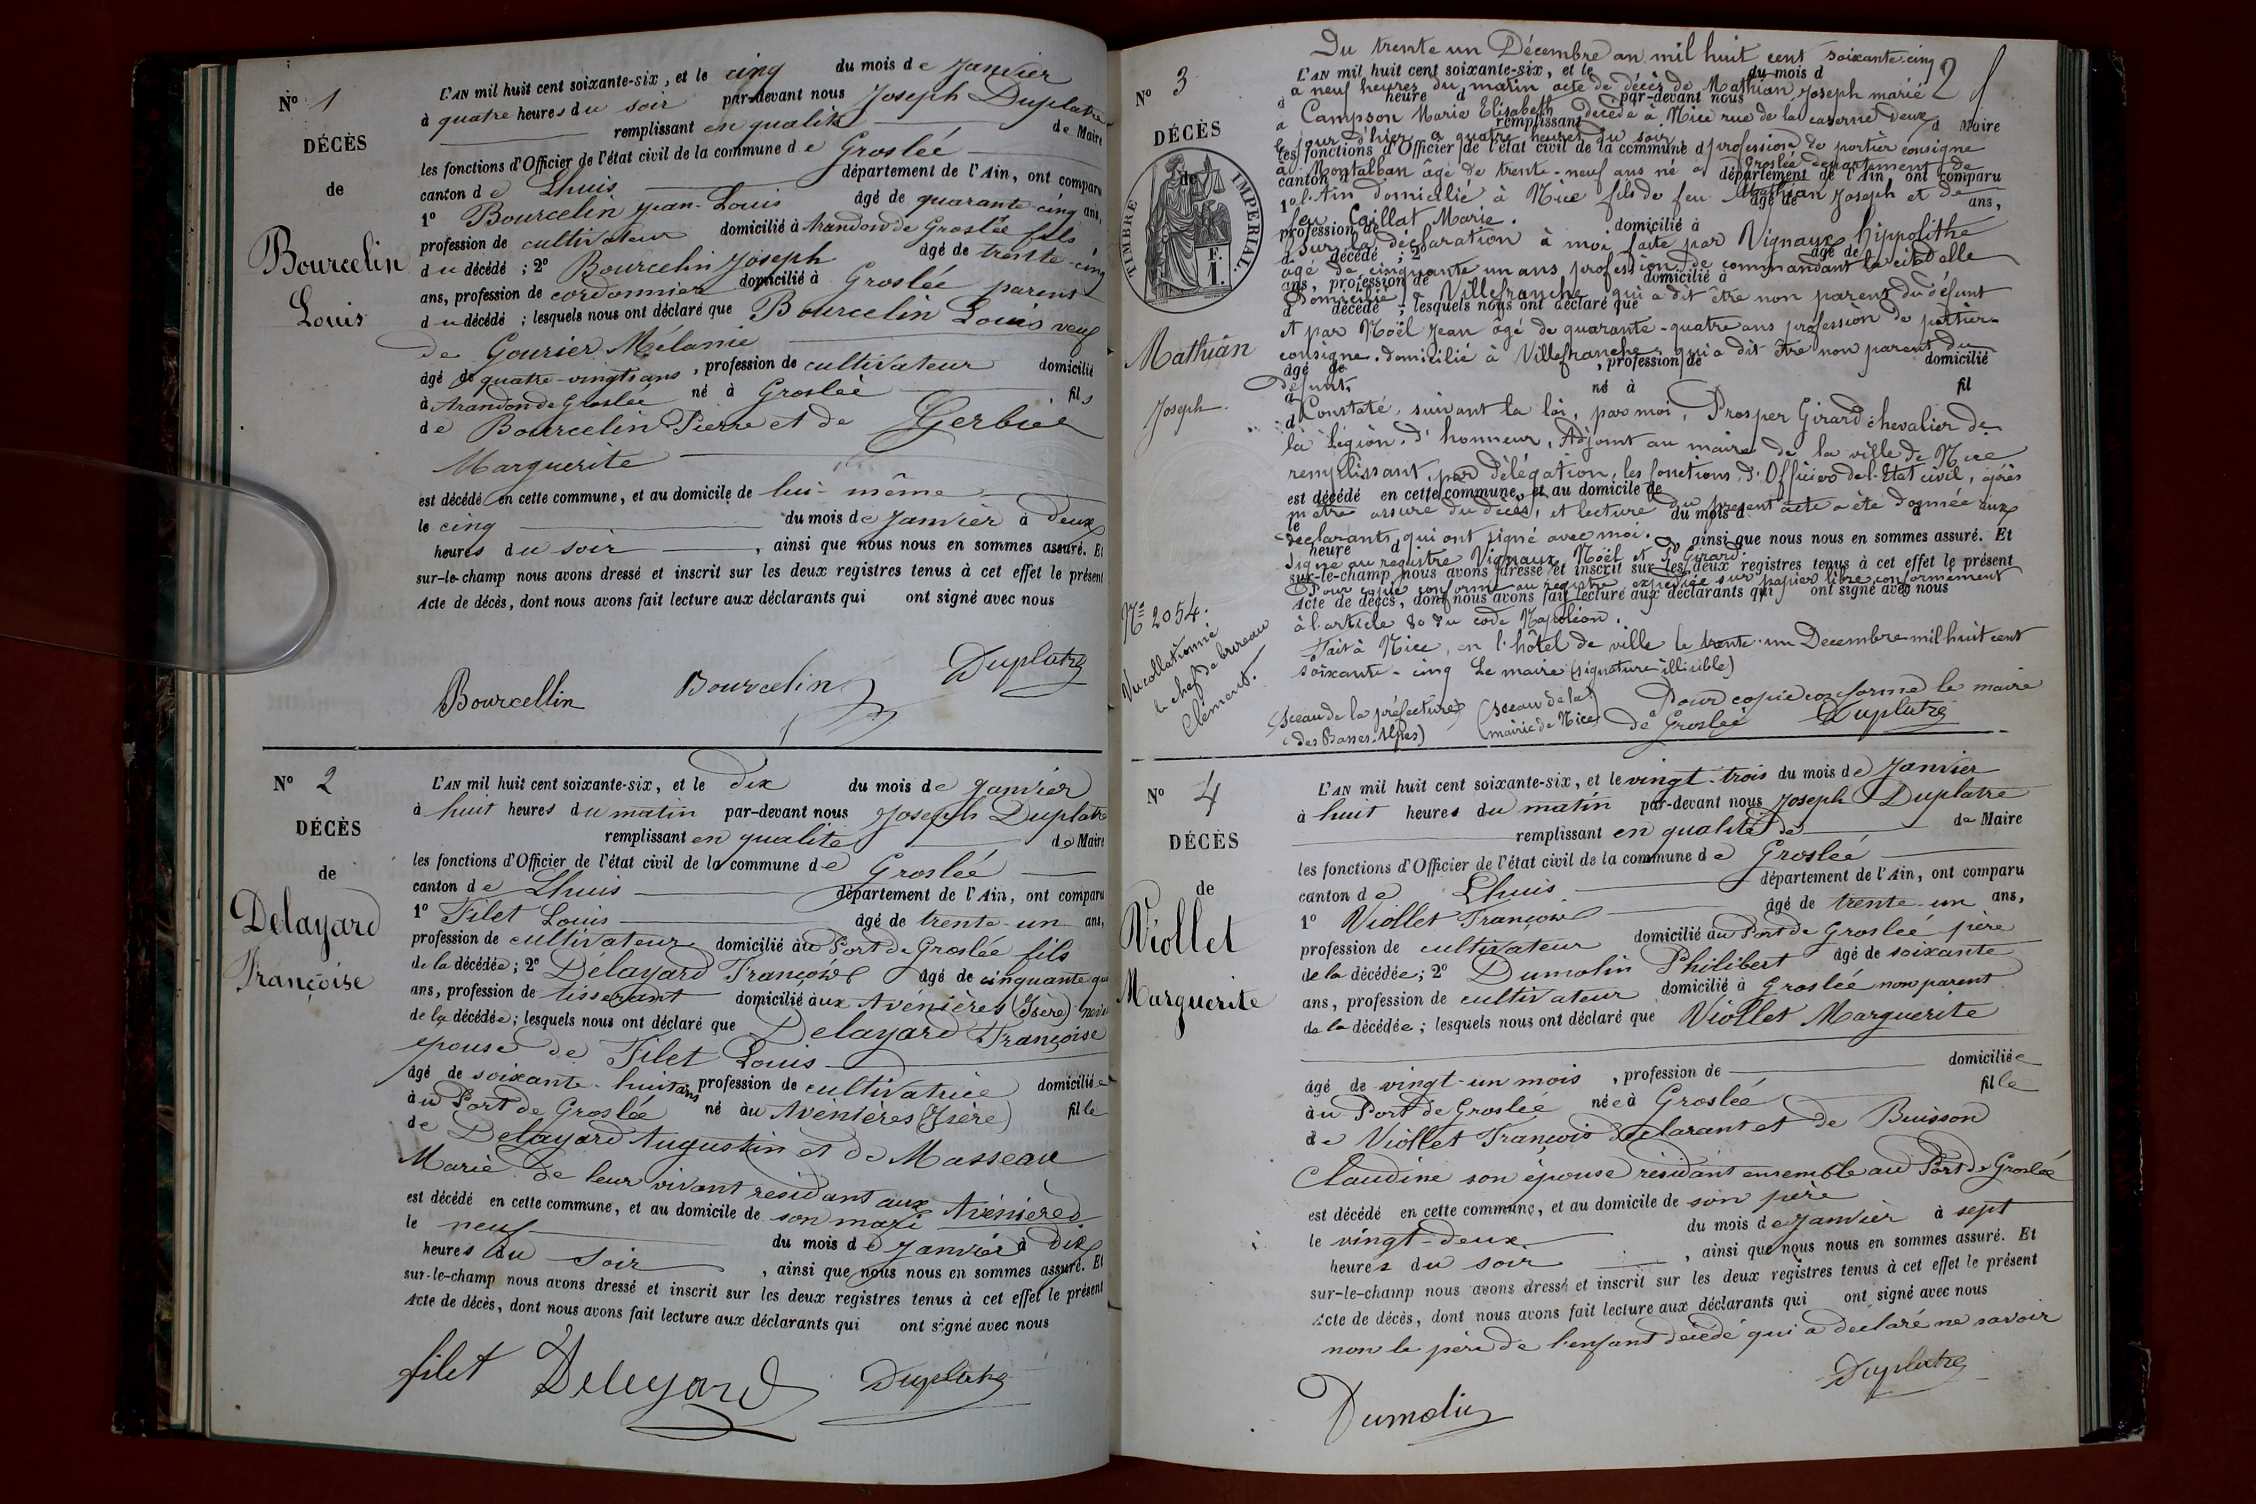 N° 1
DÉCÈS
de
Bourcelin
Louis
L'AN mil huit cent soixante-six, et le cinq du mois de Janvier
à quatre heures du soir par-devant nous Joseph Duplatre
remplissant en qualité de Maire
les fonctions d'Officier de l'état civil de la commune de Groslée
canton de Lhuis département de l'Ain, ont comparu
1° Bourcelin Jean-Louis âgé de quarante-cinq ans,
profession de cultivateur domicilié à Arandon de Groslée fils
du décédé ; 2° Bourcelin Joseph âgé de trente-cinq
ans, profession de cordonnier domicilié à Groslée parent
du décédé ; lesquels nous ont déclaré que Bourcelin Louis veuf
de Gourier Mélanie
âgé de quatre-vingts ans, profession de cultivateur domicilié
à Arandon de Groslée né à Groslée fils
de Bourcelin Pierre et de Gerbier
Marguerite
est décédé en cette commune, et au domicile de lui-même
le cinq du mois de Janvier à deux
heures du soir, ainsi que nous nous en sommes assuré. Et
sur-le-champ nous avons dressé et inscrit sur les deux registres tenus à cet effet le présent
Acte de décès, dont nous avons fait lecture aux déclarants qui ont signé avec nous
Bourcellin Bourcelin Duplatre
N° 2
DÉCÈS
de
Delayard
Françoise
L'AN mil huit cent soixante-six, et le dix du mois de Janvier
à huit heures du matin par-devant nous Joseph Duplatre
remplissant en qualité de Maire
les fonctions d'Officier de l'état civil de la commune de Groslée
canton de Lhuis département de l'Ain, ont comparu
1° Filet Louis âgé de trente-un ans,
profession de cultivateur domicilié au Port de Groslée fils
de la décédée ; 2° Délayard François âgé de cinquante
ans, profession de tisserant domicilié aux Avénières (Isère)
de la décédée ; lesquels nous ont déclaré que Delayard Françoise
épouse de Filet Louis
âgé de soixante-huit ans, profession de cultivatrice domiciliée
au Port de Groslée né au Avénières (Isère) fille
de Delayard Augustin et de Masseau
Marie de leur vivant residant aux Avénières
est décédé en cette commune, et au domicile de son mari
le neuf du mois de Janvier à dix
heures du soir, ainsi que nous nous en sommes assuré. Et
sur-le-champ nous avons dressé et inscrit sur les deux registres tenus à cet effet le présent
Acte de décès, dont nous avons fait lecture aux déclarants qui ont signé avec nous
filet Deleyard Duplatre
2
N° 3
DÉCÈS
de
TIMBRE IMPÉRIAL.
F.
1.
Mathian
Joseph.
Du trente un Décembre an mil huit cent soixante-cinq
L'AN mil huit cent soixante-six, et le du mois d
à neuf heures du matin acte de décès de Mathian Joseph marié
à heure d par-devant nous
à Campson Marie Elisabeth décédé à Nice rue de la caserne deux
remplissant d Maire
le jour d'hier à quatre heures du soir profession de portier consigne
les fonctions d'Officier de l'état civil de la commune d
à Montalban âgé de trente-neuf ans né à Groslée département de
canton d département de l'Ain, ont comparu
l'Ain domicilié à Nice fils de feu Mathian Joseph et de
1° âgé de ans,
feu Caillat Marie.
profession de domicilié à
Sur la déclaration à moi faite par Vignaux Hippolithe
d décédé ; 2° âgé de
âgé de cinquante un ans profession de commandant la citadelle
ans, profession de domicilié à
domicilié à Villefranche qui a dit être non parent du défunt
d décédé ; lesquels nous ont déclaré que
et par Noël Jean âgé de quarante-quatre ans profession de portier-
consigne, domicilié à Villefranche, qui a dit être non parent du
âgé de, profession de domicilié
défunt.
à né à fil
d Constaté, suivant la loi, par moi, Prosper Girard chevalier de
la Légion d'honneur, Adjoint au maire de la ville de Nice
remplissant, par délégation, les fonctions d'Officier de l'Etat civil, après
est décédé en cette commune, et au domicile de
m'être assuré du décès, et lecture du présent acte a été donnée aux
le du mois d à
déclarants qui ont signé avec moi.
heure d, ainsi que nous nous en sommes assuré. Et
Signé au registre Vignaux, Noël et Pr Girard.
sur-le-champ nous avons dressé et inscrit sur les deux registres tenus à cet effet le présent
Pour copie conforme au registre, expédiée sur papier libre conformément
Acte de décès, dont nous avons fait lecture aux déclarants qui ont signé avec nous
à l'article 80 du code Napoléon.
Fait à Nice, en l'hôtel de ville le trente-un Decembre mil huit cent
soixante-cinq Le maire (signature illisible)
N° 2054.
Vu collationné
le chef de bureau
Clément.
(sceau de la préfecture
des Basses-Alpes)
(sceau de la
mairie de Nice)
Pour copie conforme le maire
de Groslée Duplatre
N° 4
DÉCÈS
de
Viollet
Marguerite
L'AN mil huit cent soixante-six, et le vingt-trois du mois de Janvier
à huit heures du matin par-devant nous Joseph Duplatre
remplissant en qualité de de Maire
les fonctions d'Officier de l'état civil de la commune de Groslée
canton de Lhuis département de l'Ain, ont comparu
1° Viollet François âgé de trente-un ans,
profession de cultivateur domicilié au Port de Groslée père
de la décédée ; 2° Dumolin Philibert âgé de soixante
ans, profession de cultivateur domicilié à Groslée non parent
de la décédée ; lesquels nous ont déclaré que Viollet Marguerite
âgé de vingt-un mois, profession de domiciliée
au Port de Groslée née à Groslée fille
de Viollet François déclarant et de Buisson
Claudine son épouse résidant ensemble au Port de Groslée
est décédé en cette commune, et au domicile de son père
le vingt-deux du mois de Janvier à sept
heures du soir, ainsi que nous nous en sommes assuré. Et
sur-le-champ nous avons dressé et inscrit sur les deux registres tenus à cet effet le présent
Acte de décès, dont nous avons fait lecture aux déclarants qui ont signé avec nous
non le père de l'enfant décédé qui a déclaré ne savoir
Dumolin Duplatre